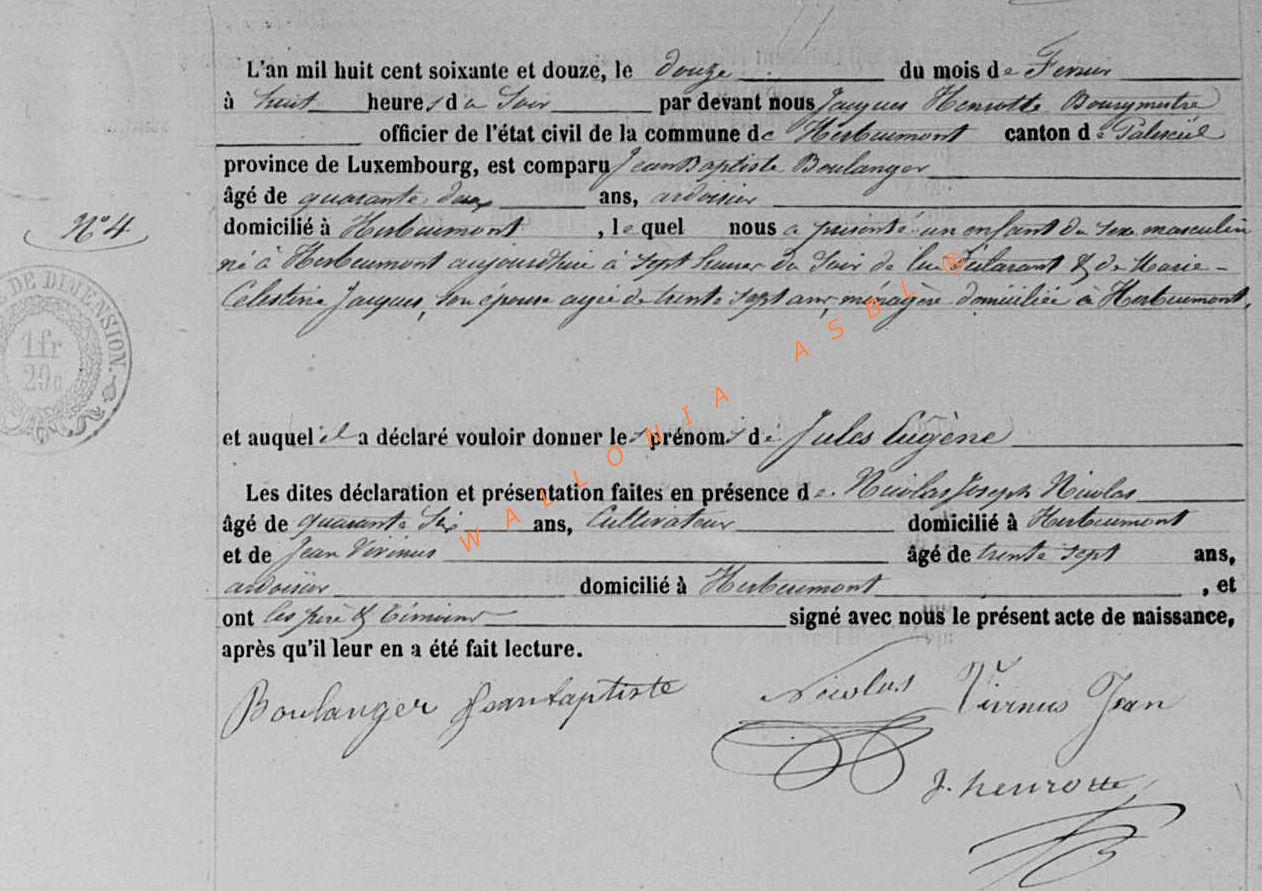 L'an mil huit cent soixante et douze, le douze du mois de Fevrier
à huit heures du Soir par devant nous Jacques Henrotte Bourgmestre
officier de l'état civil de la commune de Herbeumont canton de Paliseul
province de Luxembourg, est comparu Jean Baptiste Boulanger
âgé de quarante deux ans, ardoisier
N° 4
domicilié à Herbeumont, lequel nous a présenté un enfant du sexe masculin
né à Herbeumont aujourdhui à sept heures du Soir de lui Déclarant & de Marie-
Celestine Jacques, son épouse agée de trente sept ans, ménagère domiciliée à Herbeumont,
DE DIMENSION.
1fr
20c
et auquel il a déclaré vouloir donner les prénoms de Jules Eugène
Les dites déclaration et présentation faites en présence de Nicolas Joseph Nicolas
âgé de quarante Six ans, Cultivateur domicilié à Herbeumont
et de Jean Virinus âgé de trente sept ans,
ardoisier domicilié à Herbeumont, et
ont les père & témoins signé avec nous le présent acte de naissance,
après qu'il leur en a été fait lecture.
Boulanger Jean baptiste Nicolas Virinus Jean
J. henrotte
WALLONIA ASBL ®